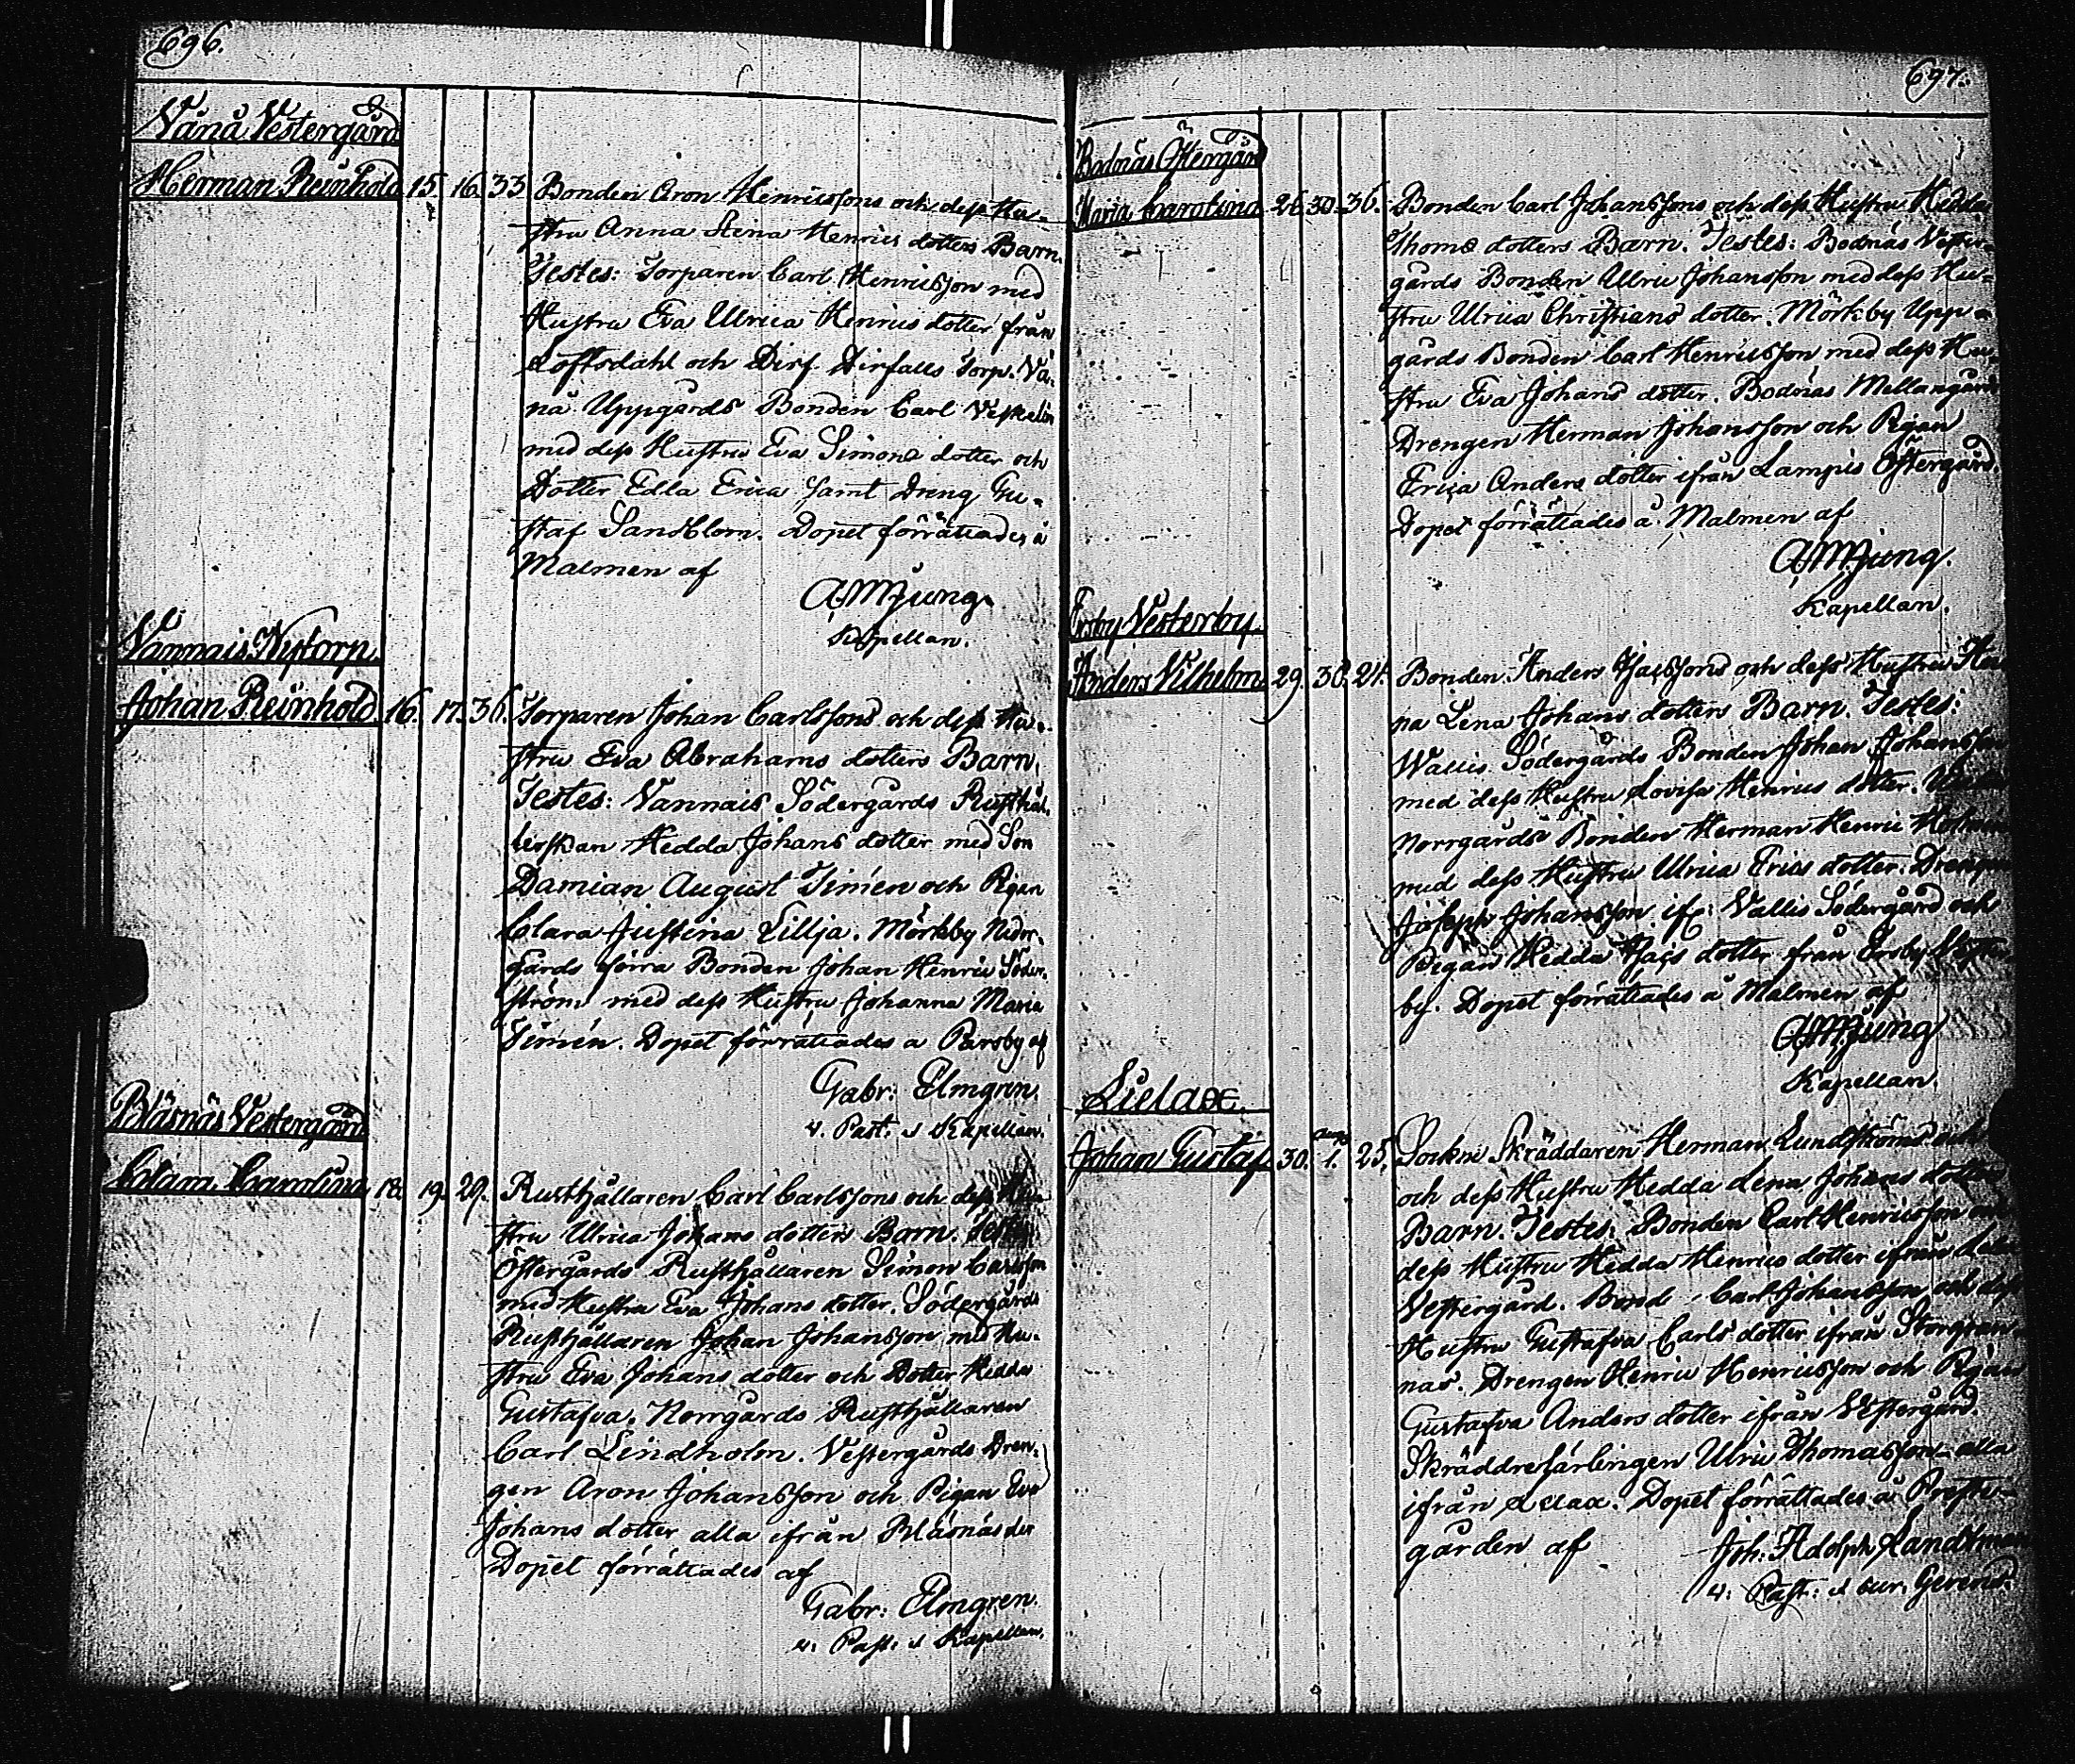 696.
Vånå Vestergård
Herman Reinhold 15. 16. 33 Bonden Aron Henricssons och dess Hu-
stru Anna Lena Henrics dotters Barn.
Testes: Torparen Carl Henricsson med
Hustru Eva Ulrica Henrics dotter från
Loftsdahl och Disf. Dirfalls Torp. Vå-
nå Uppgårds Bonden Carl
med dess Hustru Eva Simons dotter och
Dotter Edla Erica samt Dreng Gu-
staf Sandblom. Dopet förrättades å
Malmen af
AMjung.
Kapellan.
Vannais Nytorp.
Johan Reinhold 16. 17. 36. Torparen Johan Carlssons och dess Hu-
stru Eva Abrahams dotters Barn.
Testes: Vannais Södergårds Rusthål-
lerskan Hedda Johans dotter med Son
Damian August Simén och Pigan
Clara Justina Lillja. Mörkby Nedr-
gårds förra Bonden Johan Henric Söder-
ström med dess Hustru Johanna Maria
Simén. Dopet förrättades a Parsby af
Gabr: Elmgren.
v. Past: & Kapellan.
Blåsnäs Vestergård
Clara Carolina 18. 19. 29. Rusthållaren Carl Carlssons och dess Hu-
stru Ulrica Johans dotters Barn. Testes:
Östergårds Rusthållaren Simon Carlsson
med Hustru Eva Johans dotter. Södergårds
Rusthållaren Johan Johansson med Hu-
stru Eva Johans dotter och Dotter Hedda
Gustafva. Norrgårds Rusthållaren
Carl Lindholm. Vestergårds Dren-
gen Aron Johansson och Pigan Eva
Johans dotter alla ifrån Blåsnäs der
Dopet förrättades af
Gabr: Elmgren.
v. Past: & Kapellan.
697.
Bodnäs Östergård
Maria Carolina 26. 30. 36. Bonden Carl Johanssons och dess Hustru Hedda
Thoms dotters Barn. Testes: Bodnäs Vester-
gårds Bonden Ulric Johansson med dess Hu-
stru Ulrica Christians dotter. Mörkby Upp-
gårds Bonden Carl Henricsson med dess Hu-
stru Eva Johans dotter. Bodnäs Mellangård
Drengen Herman Johansson och Pigan
Erica Anders dotter ifrån Lampis Östergård.
Dopet förrättades å Malmen af
AMjung.
Kapellan.
Ersby Vesterby.
Anders Vilhelm 29. 30. 24. Bonden Anders Isacssons och dess Hustru
na Lena Johans dotters Barn. Testes:
Wallis Södergårds Bonden Johan Johansson
med dess Hustru Lovisa Henrics dotter.
Norrgårds Bonden Herman Henric
med dess Hustru Ulrica Erics dotter. Drengen
Joseph Johansson ifr: Vallis Södergård och
Pigan Hedda Isacs dotter från Ersby Vester-
by. Dopet förrättades å Malmen af
AMjung
Kapellan.
Lielax.
Johan Gustaf 30. Aug. 1. 25. Sockne Skräddaren Herman Lundströms och
och dess Hustru Hedda Lena Johans dotters
Barn. Testes: Bonden Carl Henricsson och
dess Hustru Hedda Henrics dotter ifrån
Vestergård. Bond. Carl Johansson och dess
Hustru Gustafva Carls dotter ifrån Storgran-
näs. Drengen Henric Henricsson och Pigan
Gustafva Anders dotter ifrån Vestergård.
Skräddrefärlingen Ulric Thomasson alla
ifrån Lielax. Dopet förrättades å Preste-
gården af
Joh: Adolph Sandtman
v. Past: & cur. Gerens.